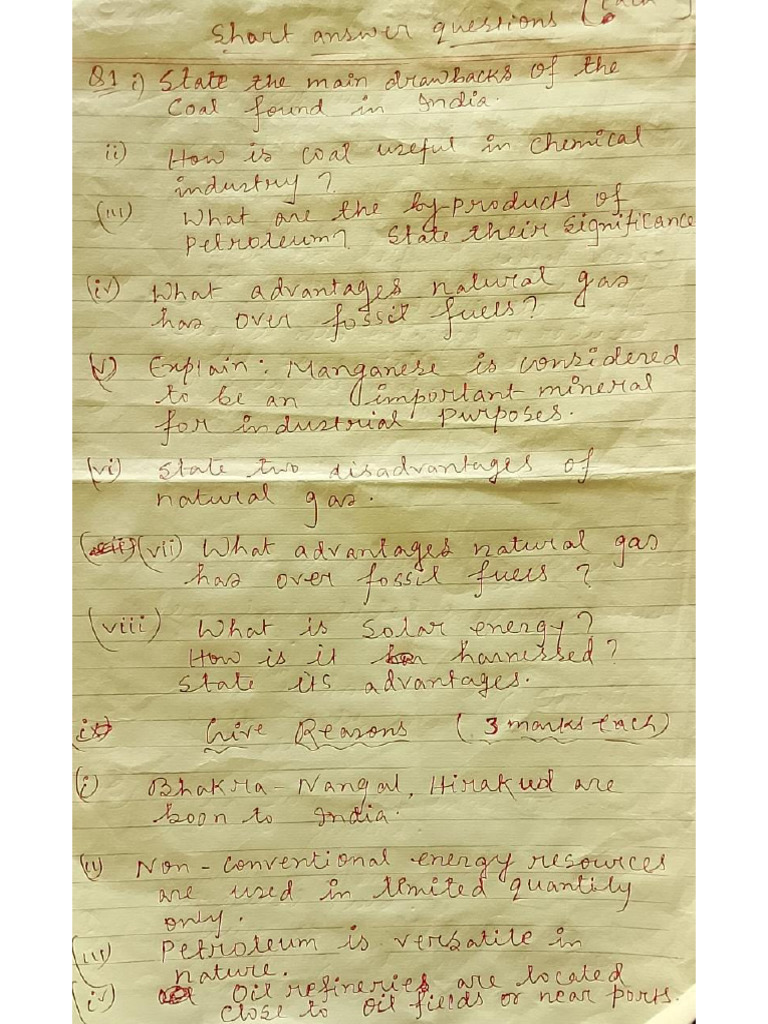 Short answer questions (
Q1 i) State the main drawbacks of the
Coal found in India.
ii) How is coal useful in chemical
industry?
(iii) What are the by-products of
Petroleum? State their Significance
(iv) What advantages natural gas
has over fossil fuels?
(v) Explain: Manganese is considered
to be an important mineral
for industrial purposes.
(vi) State two disadvantages of
natural gas.
(vii) What advantages natural gas
has over fossil fuels?
(viii) What is Solar energy?
How is it harnessed?
State its advantages.
ix) Give Reasons (3 marks each)
(i) Bhakra-Nangal, Hirakud are
boon to India.
(ii) Non-conventional energy resources
are used in limited quantity
only.
(iii) Petroleum is versatile in
nature.
(iv) Oil refineries are located
close to oil fields or near ports.